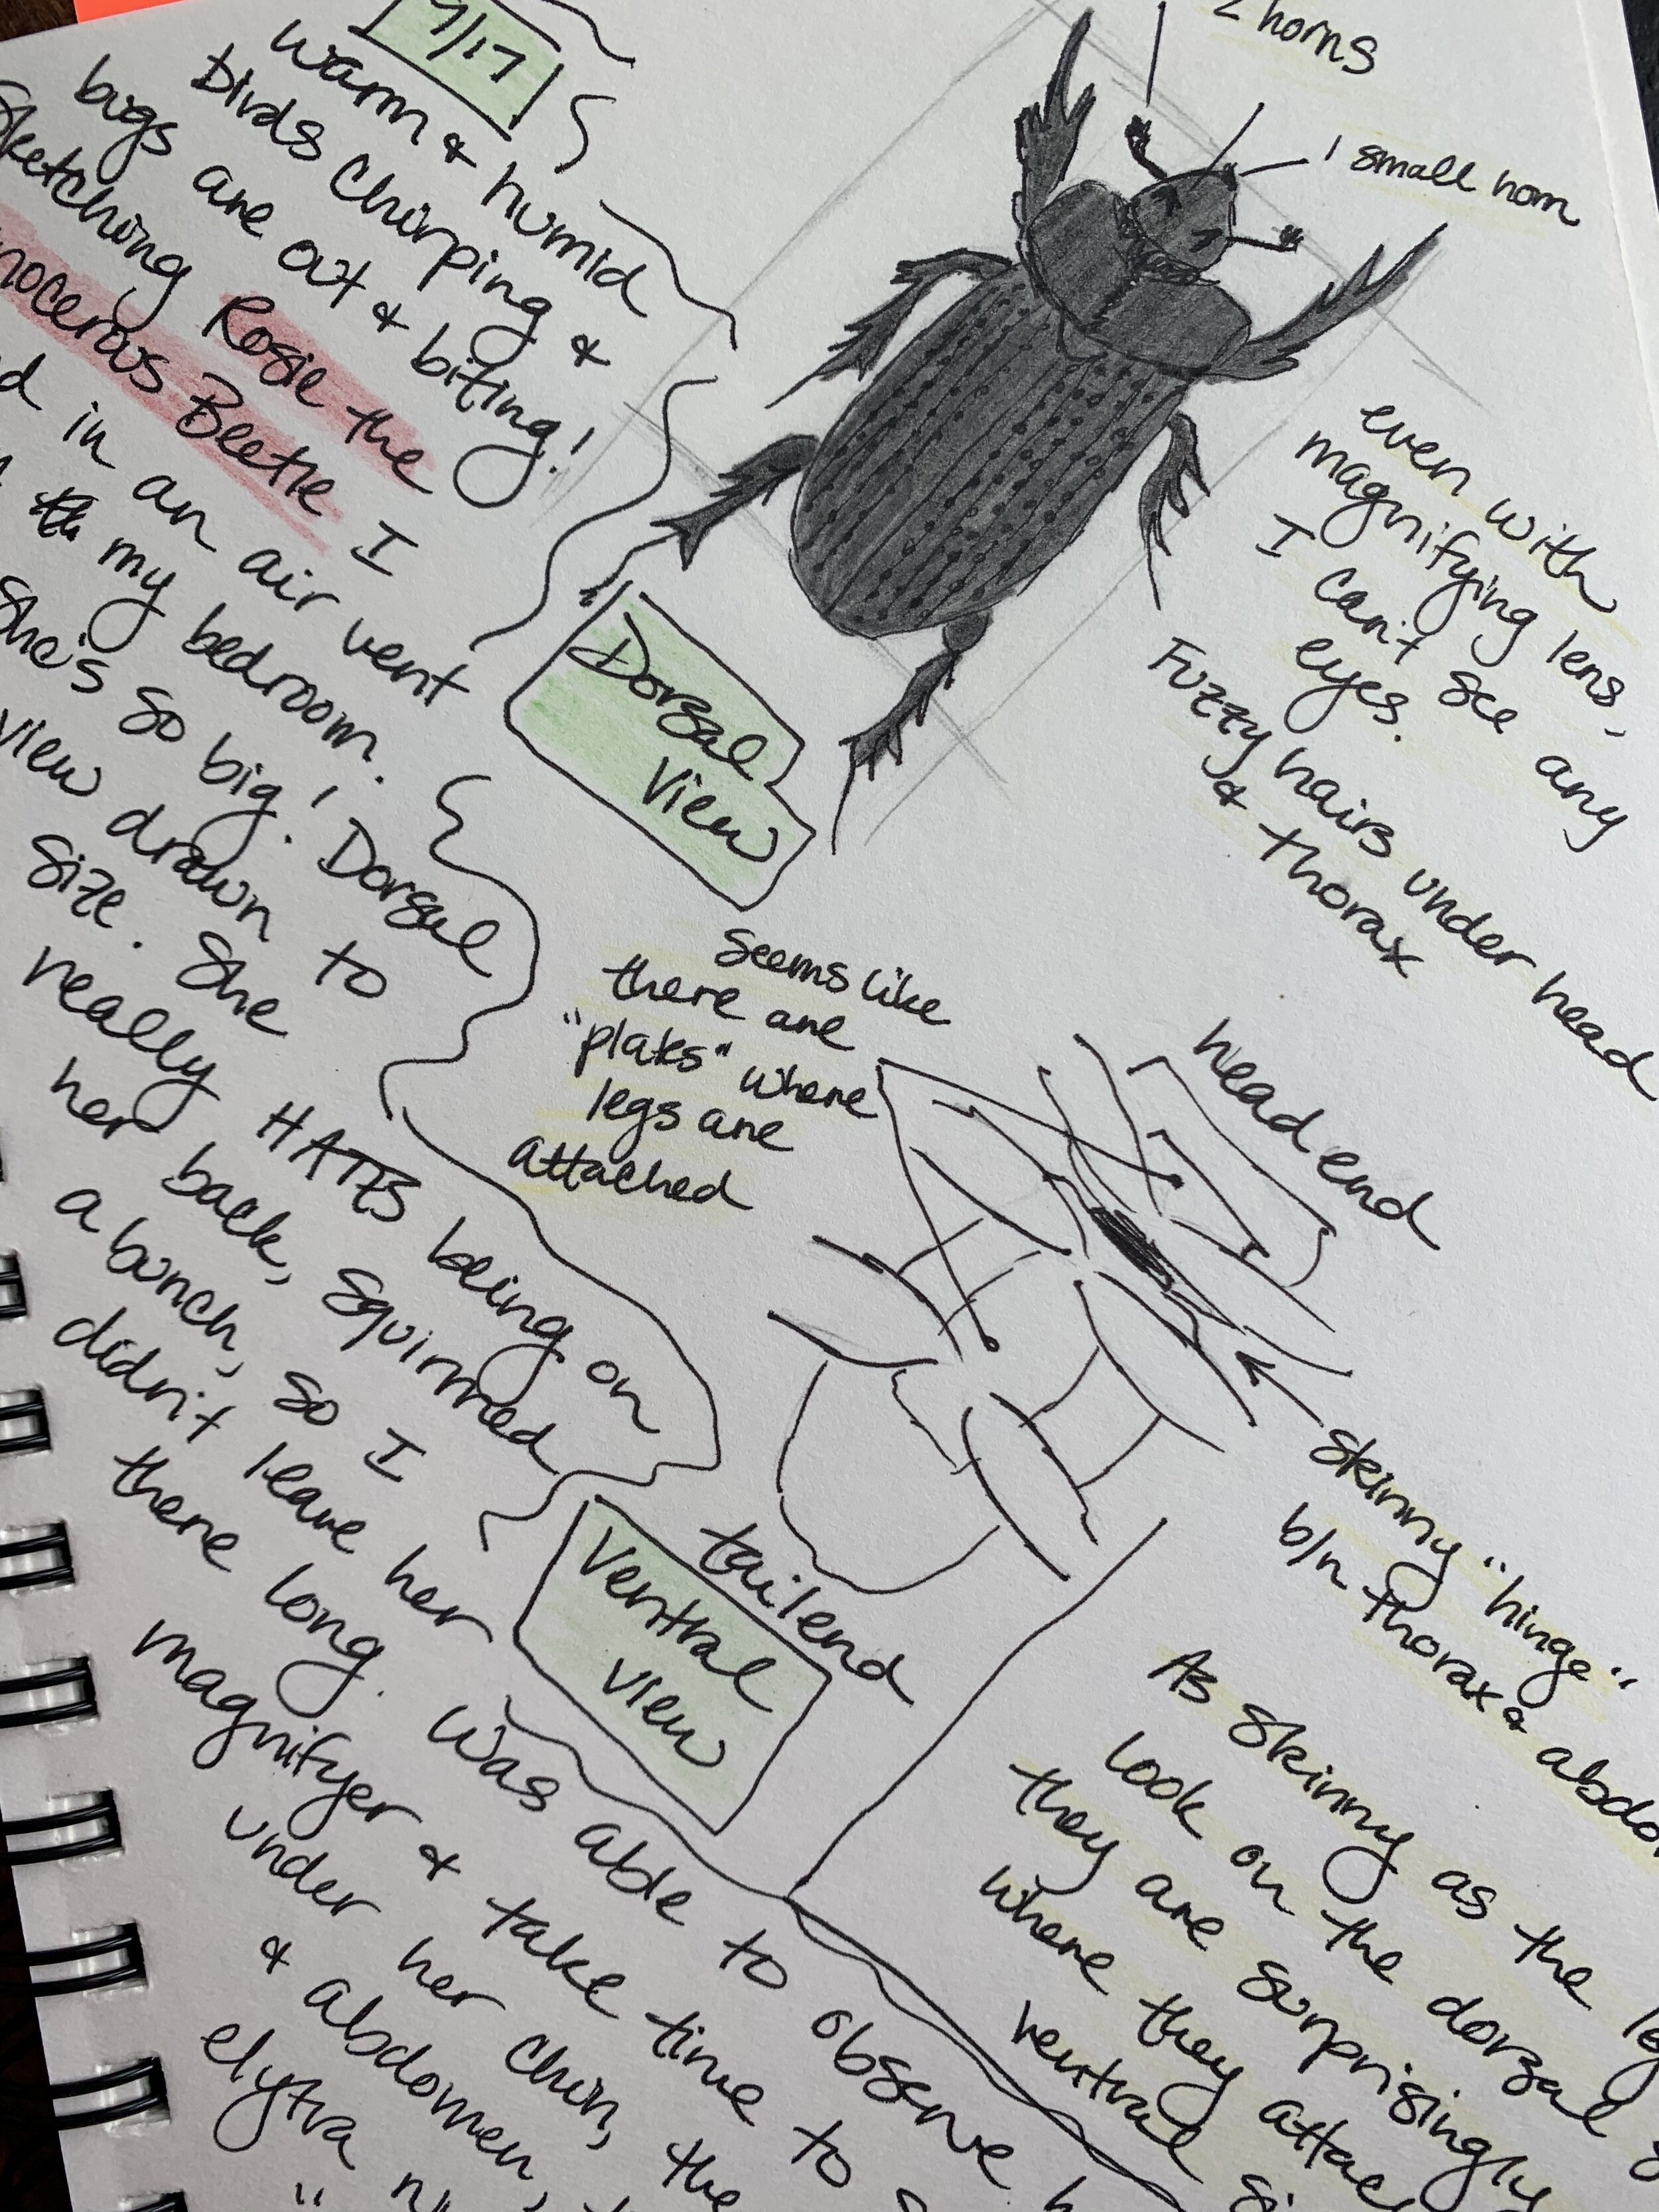 7/17
warm & humid
birds chirping &
bugs are out & biting!
sketching Rosie the
Beetle I
in an air vent
my bedroom.
She's so big! Dorsal
view drawn to
size. She
really HATES being on
her back, squirmed
a bunch, so I
didn't leave her
there long. Was able to observe
magnifyer & take time to
under her chin, the
& abdomen,
elytra
2 horns
1 small horn
even with
magnifying lens,
I can't see any
eyes.
Fuzzy hairs under head
& thorax
Dorsal
View
seems like
there are
"plaks" where
legs are
attached
head end
skinny "hinge"
b/n thorax &
tail end
Ventral
view
As skinny as the
look on the dorsal
they are surprisingly
where they
ventral